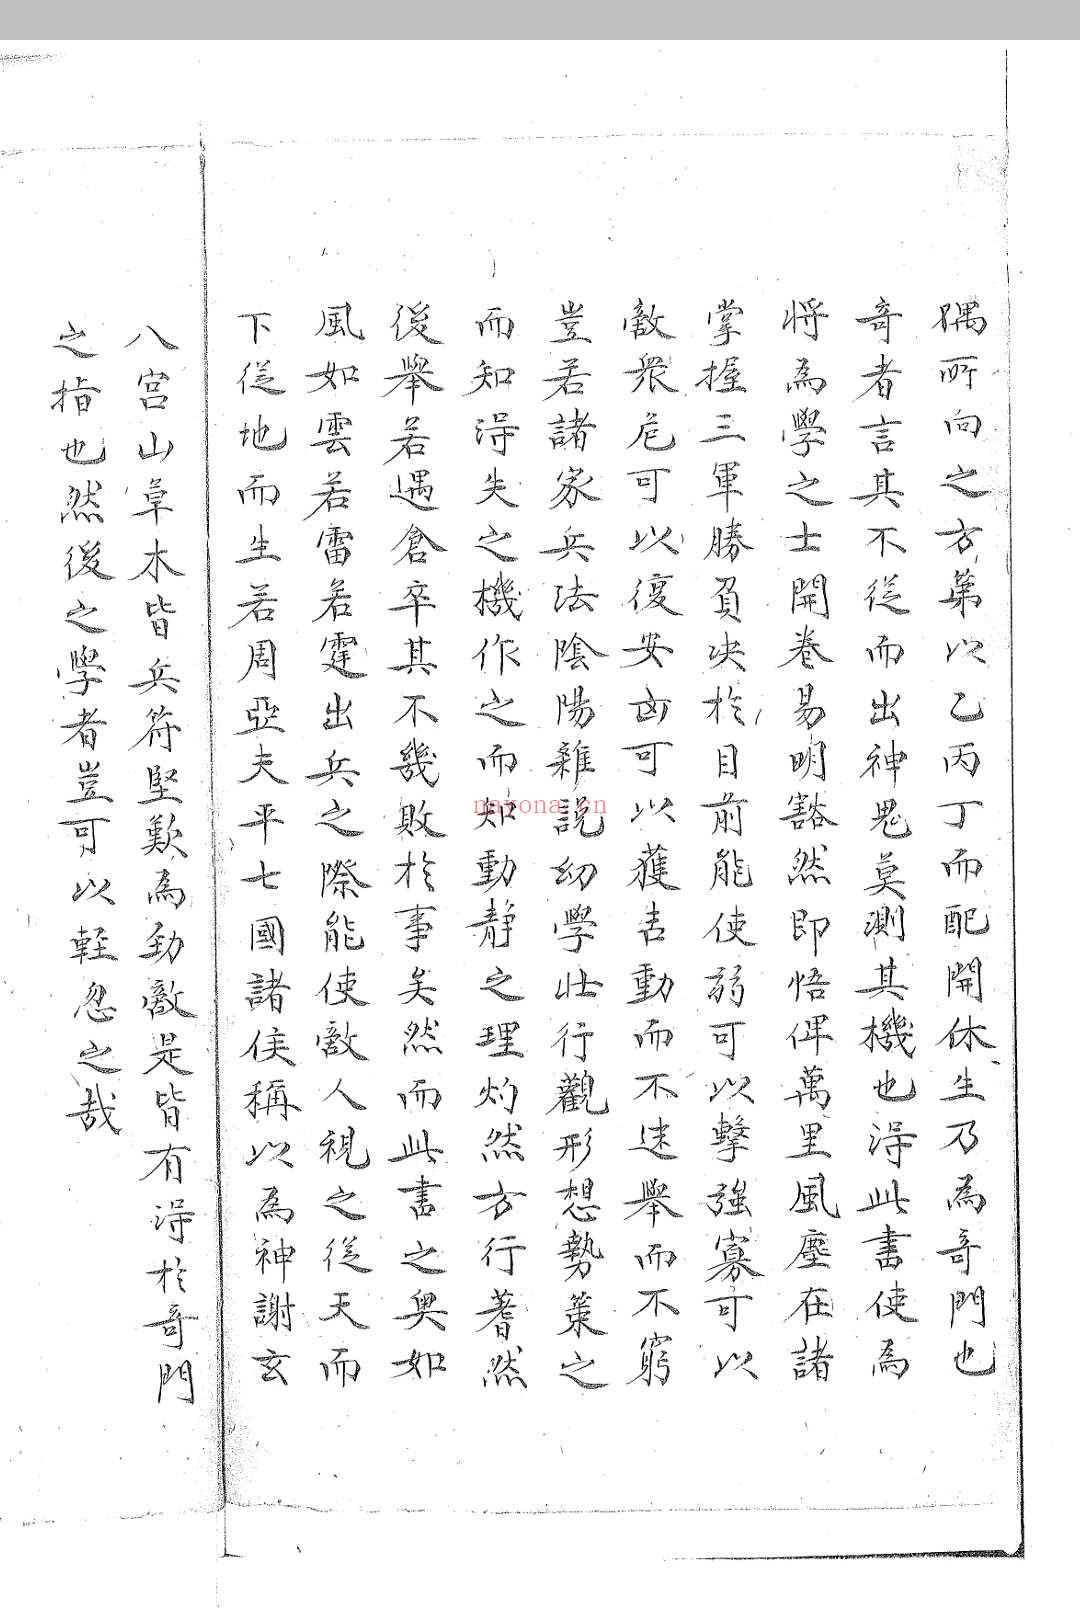 隅所向之方葉以乙丙丁而配開休生乃為奇門也
奇者言其不從而出神鬼莫測其機也淂此書使為
将為學之士開卷易明豁然即悟俾萬里風塵在諸
掌握三軍勝負决於目前能使弱可以擊強寡可以
敵衆危可以復安凶可以獲吉動而不迷舉而不窮
豈若諸家兵法陰陽雜説幼學壮行觀形想勢策之
而知淂失之機作之而知動靜之理灼然方行蓍然
後舉若遇倉卒其不幾敗於事矣然而此書之奥如
風如雲若雷若霆出兵之際能使敵人視之從天而
下從地而生若周亞夫平七國諸侯稱以為神謝玄
八宫山草木皆兵符堅歎為勁敵是皆有淂於奇門
之指也然後之學者豈可以輕忽之哉
nayona.cn